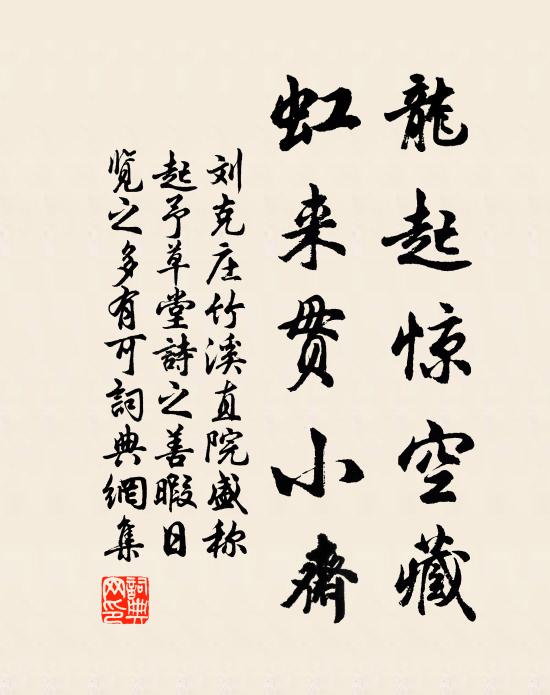 龍起惊空藏
虹来贯小齋
刘克庄竹溪直院盛称
起予草堂詩之善暇日
览之多有可詞典網集
詞典網印